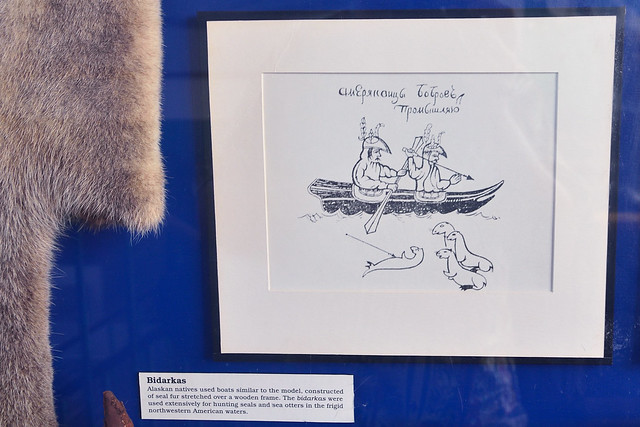 американцы бобровъ
промышляю
Bidarkas
Alaskan natives used boats similar to the model, constructed
of seal fur stretched over a wooden frame. The bidarkas were
used extensively for hunting seals and sea otters in the frigid
northwestern American waters.